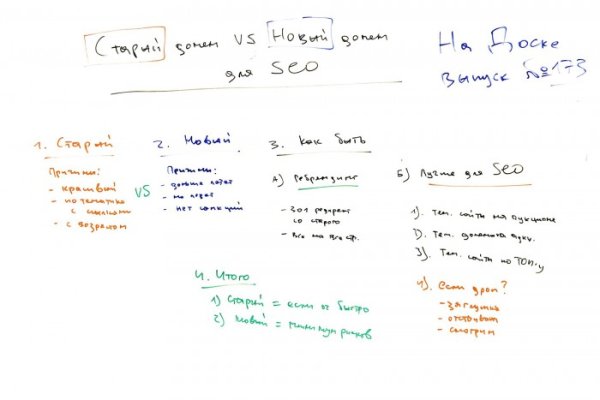 Старый домен VS Новый домен
для SEO
На Доске
выпуск №173
1. Старый
Причины:
- красивый
- по тематике
с ссылками
- с возрастом
VS
2. Новый
Причины:
- дольше
- нет санкций
3. Как быть
А) Ребрендинг
- 301 редирект
со старого
- Все на все стр.
Б) Лучше для SEO
1). Тем. сайты на аукционе
2). Тем. домены аукц.
3). Тем. сайты по ТОП-у
4). если дроп?
- заглушка
- отстояться
- смотрим
4. Итого
1) Старый = если оч быстро
2) Новый = минимум рисков